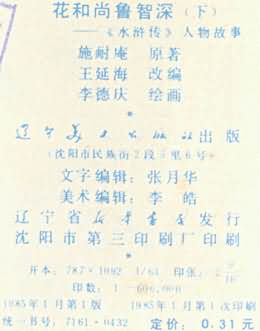 花和尚鲁智深（下）
——《水浒传》人物故事
施耐庵 原著
王延海 改编
李德庆 绘画
辽宁美术出版社出版
（沈阳市民族街2段 里6号）
文字编辑：张月华
美术编辑：李皓
辽宁省新华书店发行
沈阳市第三印刷厂印刷
开本：787×1092 1/64 印张：2
印数：1—600,000
1985年1月第1版 1985年1月第1次印刷
统一书号：7161·0432 定价：0.31元